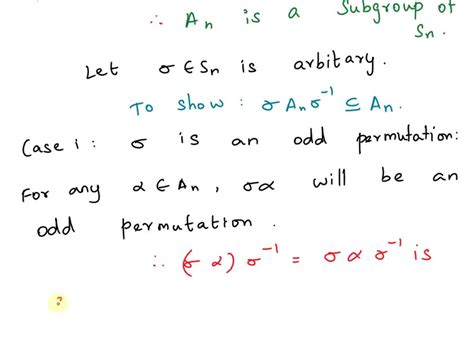 ∴ An is a Subgroup of
Sn.
Let σ ∈ Sn is arbitary.
To show : σ An σ⁻¹ ⊆ An.
Case i : σ is an odd permutation:
For any α ∈ An , σα will be an
odd permutation .
∴ (σ α) σ⁻¹ = σ α σ⁻¹ is
?